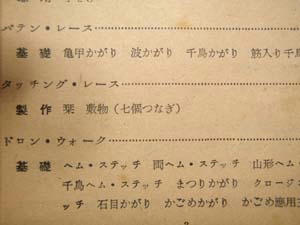 バテン・レース
基礎 亀甲かがり 波かがり 千鳥かがり 筋入り千鳥
タッチング・レース
製作 栞 敷物（七個つなぎ）
ドロン・ウォーク
基礎 ヘム・ステッチ 両ヘム・ステッチ 山形ヘム・
千鳥ヘム・ステッチ まつりかがり クロージ
ッチ 石目かがり かごめかがり かごめ應用